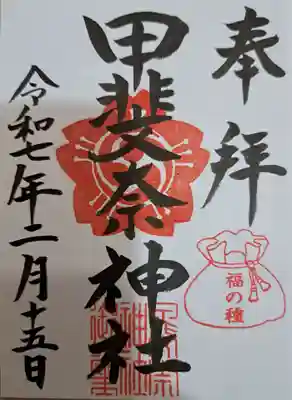 奉拝
福の種
甲斐奈神社
令和七年二月十五日